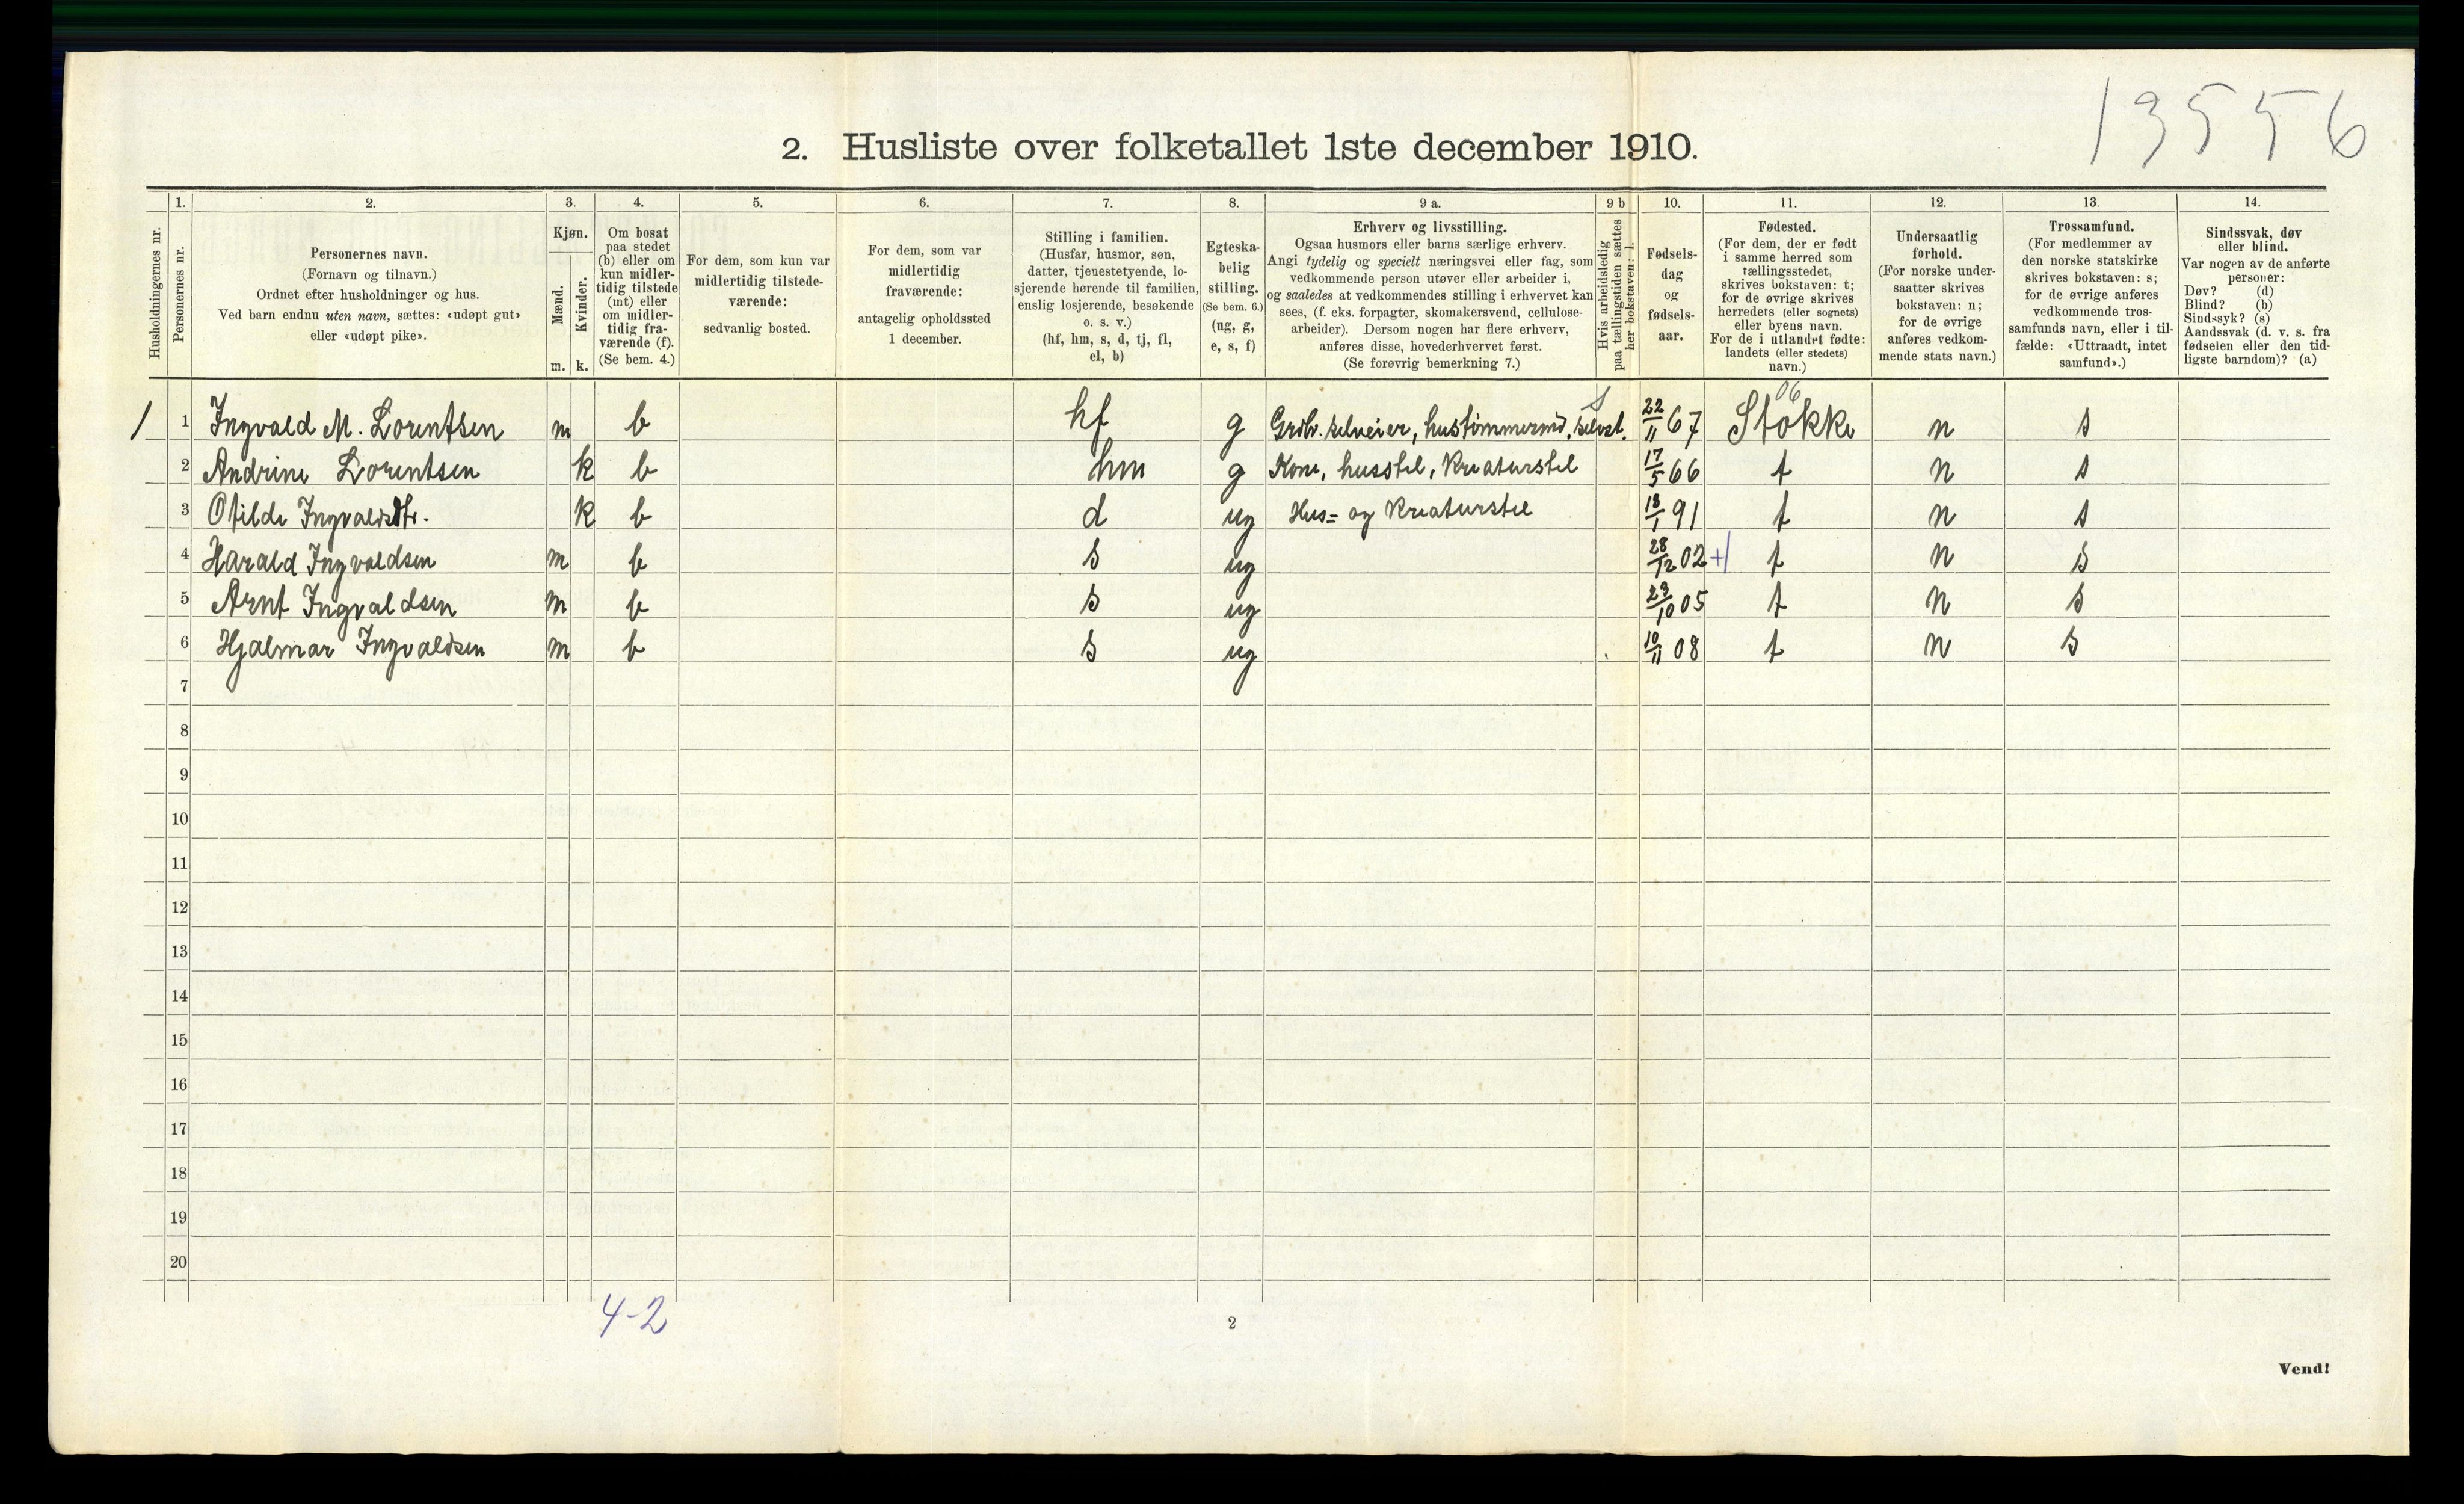 13556
2. Husliste over folketallet 1ste december 1910.
Husholdningernes nr.
1.
Personernes nr.
2.
Personernes navn.
(Fornavn og tilnavn.)
Ordnet efter husholdninger og hus.
Ved barn endnu uten navn, sættes: «udøpt gut»
eller «udøpt pike».
3.
Kjøn.
Mænd.
Kvinder.
m. k.
4.
Om bosat
paa stedet
(b) eller om
kun midler-
tidig tilstede
(mt) eller
om midler-
tidig fra-
værende (f).
(Se bem. 4.)
5.
For dem, som kun var
midlertidig tilstede-
værende:
sedvanlig bosted.
6.
For dem, som var
midlertidig
fraværende:
antagelig opholdssted
1 december.
7.
Stilling i familien.
(Husfar, husmor, søn,
datter, tjenestetyende, lo-
sjerende hørende til familien,
enslig losjerende, besøkende
o. s. v.)
(hf, hm, s, d, tj, fl,
el, b)
8.
Egteska-
belig
stilling.
(Se bem. 6.)
(ug, g,
e, s, f)
9 a.
Erhverv og livsstilling.
Ogsaa husmors eller barns særlige erhverv.
Angi tydelig og specielt næringsvei eller fag, som
vedkommende person utøver eller arbeider i,
og saaledes at vedkommendes stilling i erhvervet kan
sees, (f. eks. forpagter, skomakersvend, cellulose-
arbeider). Dersom nogen har flere erhverv,
anføres disse, hovederhvervet først.
(Se forøvrig bemerkning 7.)
9 b
Hvis arbeidsledig
paa tællingstiden sættes
her bokstaven: l.
10.
Fødsels-
dag
og
fødsels-
aar.
11.
Fødested.
(For dem, der er født
i samme herred som
tællingsstedet,
skrives bokstaven: t;
for de øvrige skrives
herredets (eller sognets)
eller byens navn.
For de i utlandet fødte:
landets (eller stedets)
navn.)
12.
Undersaatlig
forhold.
(For norske under-
saatter skrives
bokstaven: n;
for de øvrige
anføres vedkom-
mende stats navn.)
13.
Trossamfund.
(For medlemmer av
den norske statskirke
skrives bokstaven: s;
for de øvrige anføres
vedkommende tros-
samfunds navn, eller i til-
fælde: «Uttraadt, intet
samfund».)
14.
Sindssvak, døv
eller blind.
Var nogen av de anførte
personer:
Døv? (d)
Blind? (b)
Sindssyk? (s)
Aandssvak (d. v. s. fra
fødselen eller den tid-
ligste barndom)? (a)
1 1 Ingvald M. Lorentsen m b hf g Grdbr. selveier, hustømmermd, selvst. 22/11 67 06 Stokke n s
2 Andrine Lorentsen k b hm g Kone, husstel, Kreaturstel 17/5 66 t n s
3 Otilde Ingvaldsdtr. k b d ug Hus= og Kreaturstel 18/1 91 t n s
4 Harald Ingvaldsen m b s ug 28/12 02 +1 t n s
5 Arnt Ingvaldsen m b s ug 23/10 05 t n s
6 Hjalmar Ingvaldsen m b s ug 10/11 08 t n s
7
8
9
10
11
12
13
14
15
16
17
18
19
20
4-2
2
Vend!